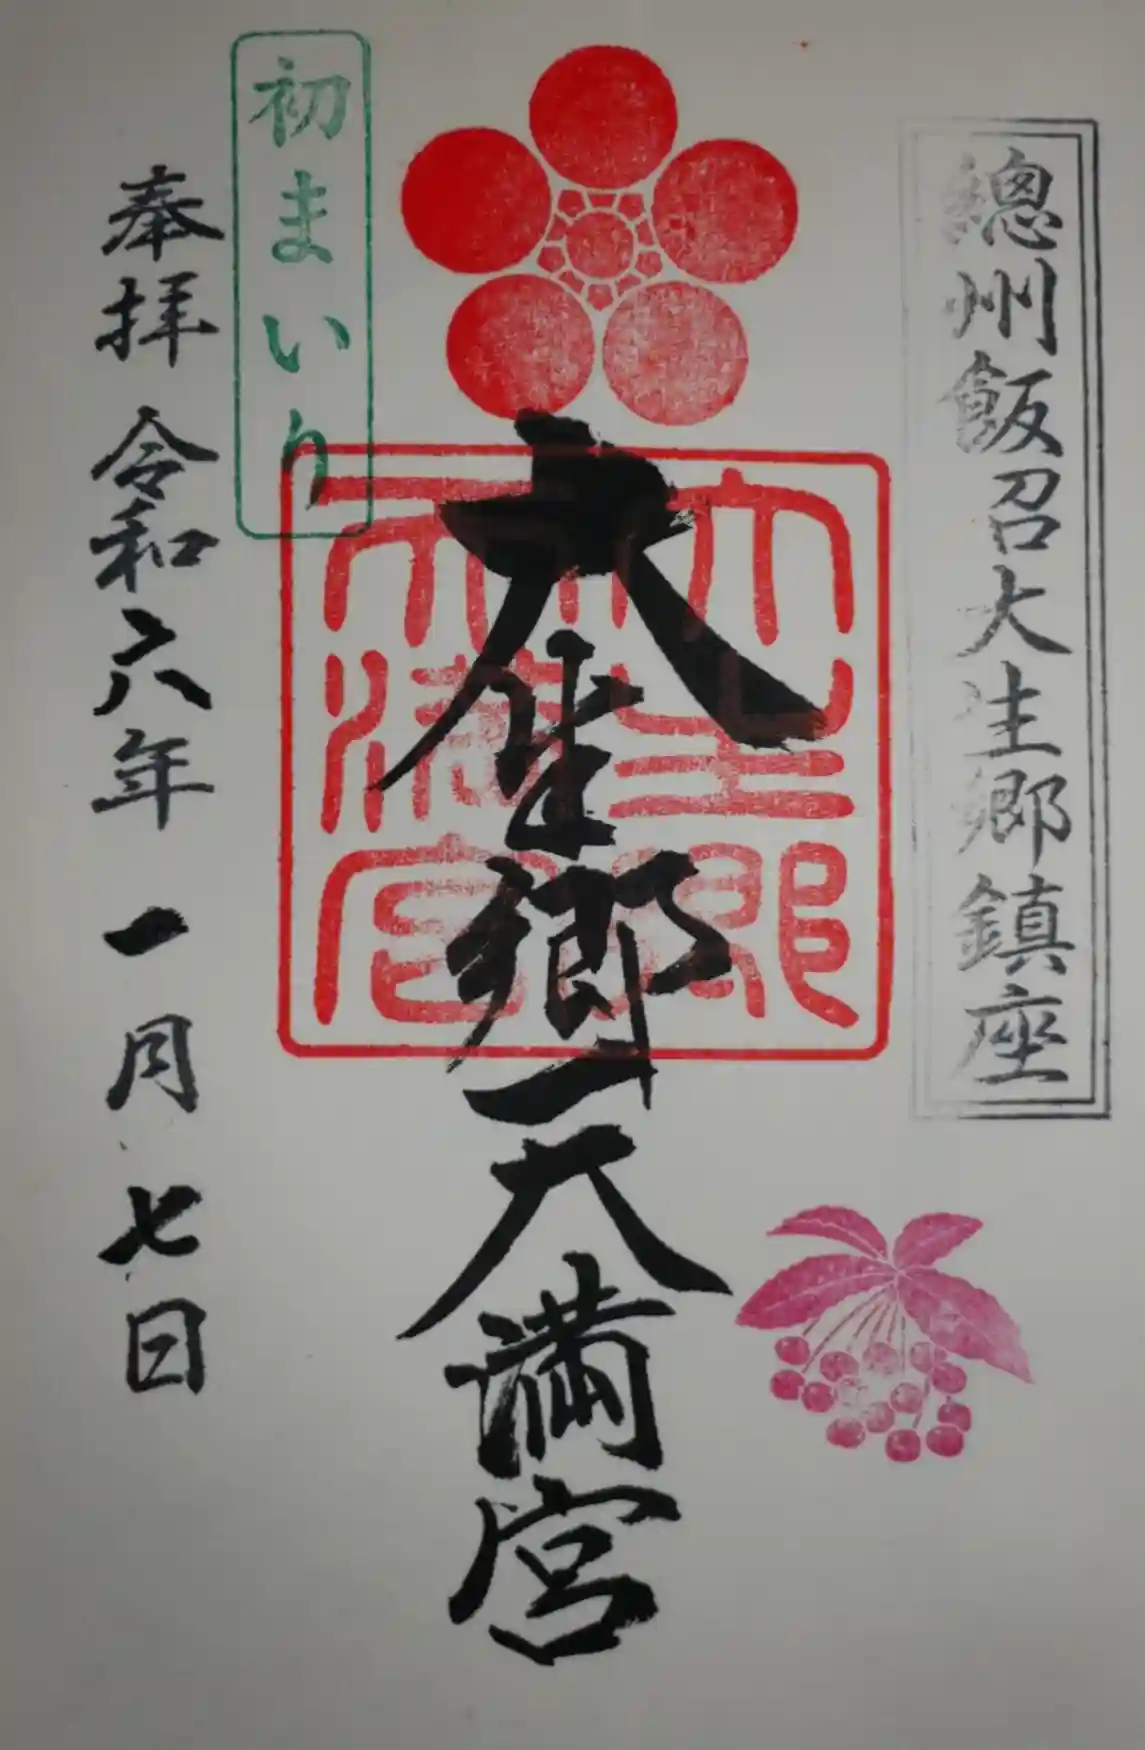 總州飯沼大生郷鎮座
大生郷天満宮
大生郷天満宮
初まいり
奉拝 令和六年 一月 七日